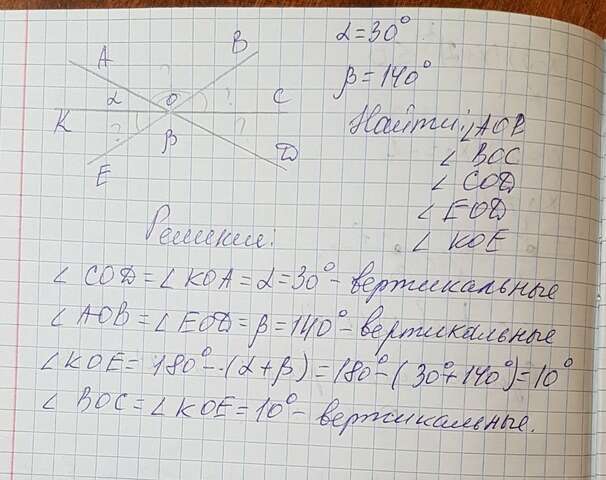 α = 30°
β = 140°
A
B
α
O
?
C
K
?
?
β
E
D
Найти: ∠AOB
∠ BOC
∠ COD
∠ EOD
∠ KOE
Решение:
∠ COD = ∠ KOA = α = 30° - вертикальные
∠ AOB = ∠ EOD = β = 140° - вертикальные
∠ KOE = 180° - (α + β) = 180° - (30° + 140°) = 10°
∠ BOC = ∠ KOE = 10° - вертикальные.